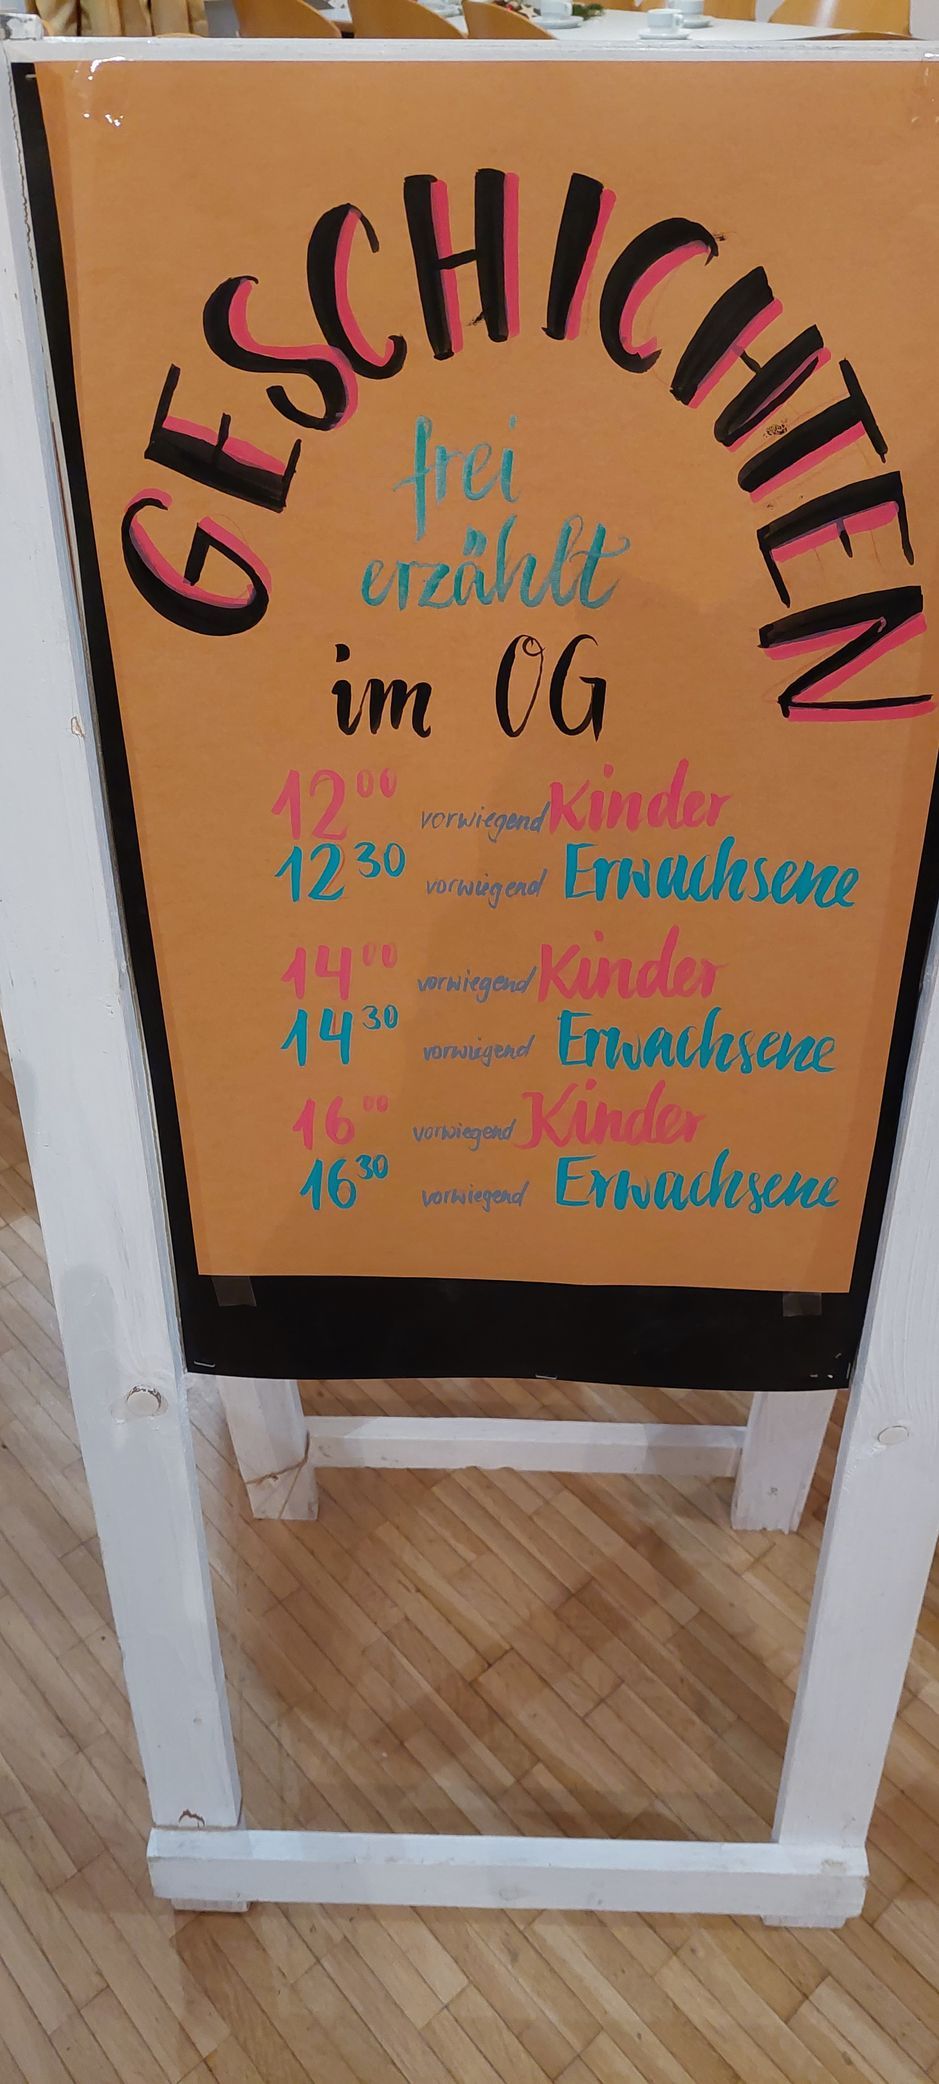 GESCHICHTEN
frei
erzählt
im OG
12⁰⁰ vorwiegend Kinder
12³⁰ vorwiegend Erwachsene
14⁰⁰ vorwiegend Kinder
14³⁰ vorwiegend Erwachsene
16⁰⁰ vorwiegend Kinder
16³⁰ vorwiegend Erwachsene